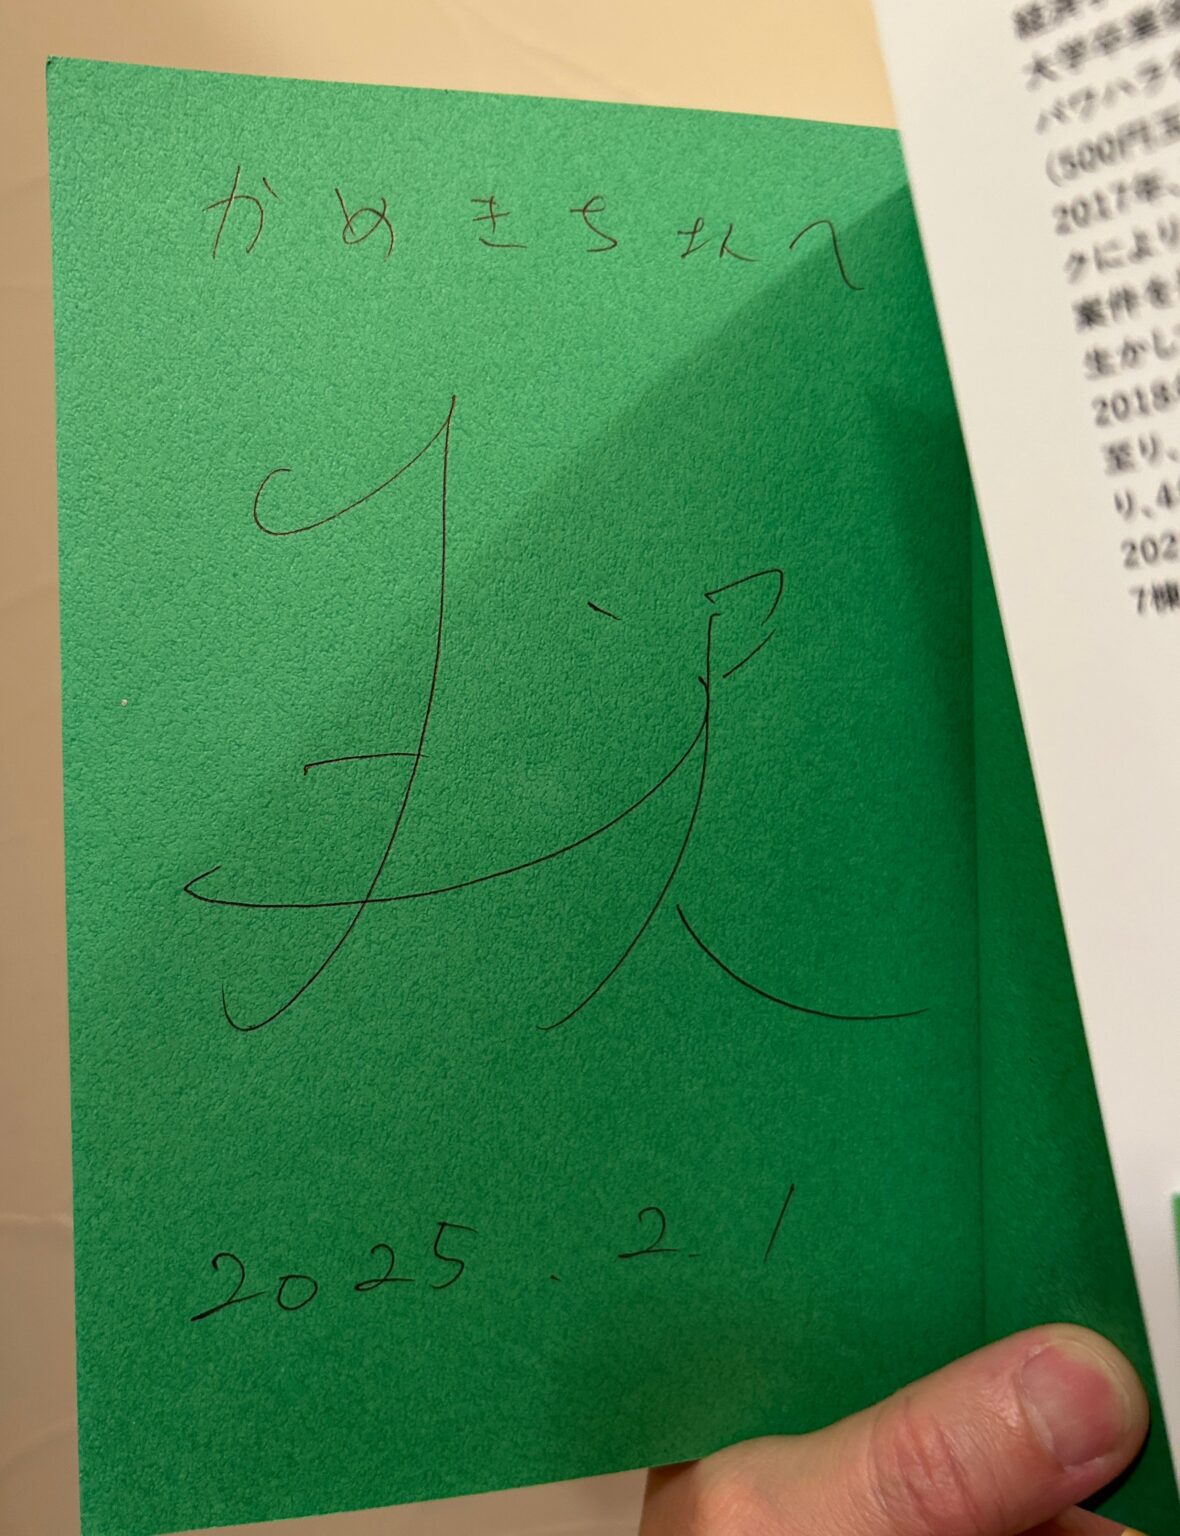 かめきちさんへ
2025.2.1
経済
大学卒業後
パワハラ
(500円玉
2017年、
クにより
案件を
生かし
2018年
至り、
り、4
202
7棟